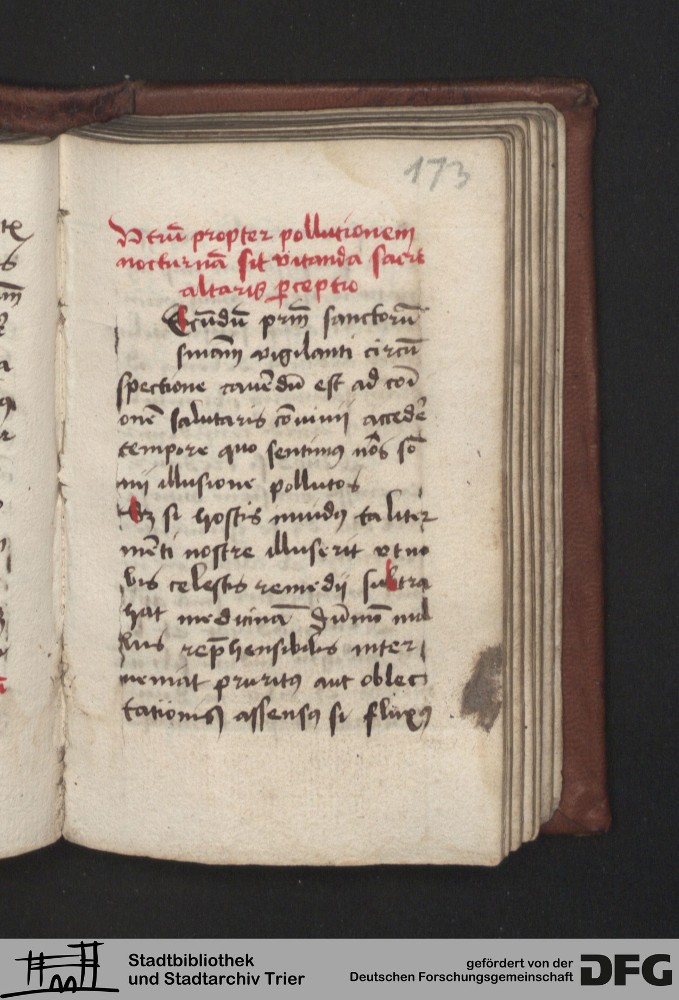 173
Vtrū propter pollutionem
nocturnā sit vitanda sacrᷓ
altaris ꝑceptio
Ecūdū prīm sanctorū
sniam vigilanti circū
spectione cauēdū est ad cōī
onē salutaris cōuiuii accedē
tempore quo sentimꝰ nos sō
nii illusione pollutos
si hostis mūdꝰ taliter
mēti nostre illuserit vt no
bis celestis remedii subtra
hat medicinā dūmō nul
lus rep̄hensibilis inter
ueniat pruritꝰ aut oblec
tationis assensꝰ si fluxꝰ
Stadtbibliothek
und Stadtarchiv Trier
gefördert von der
Deutschen Forschungsgemeinschaft
DFG